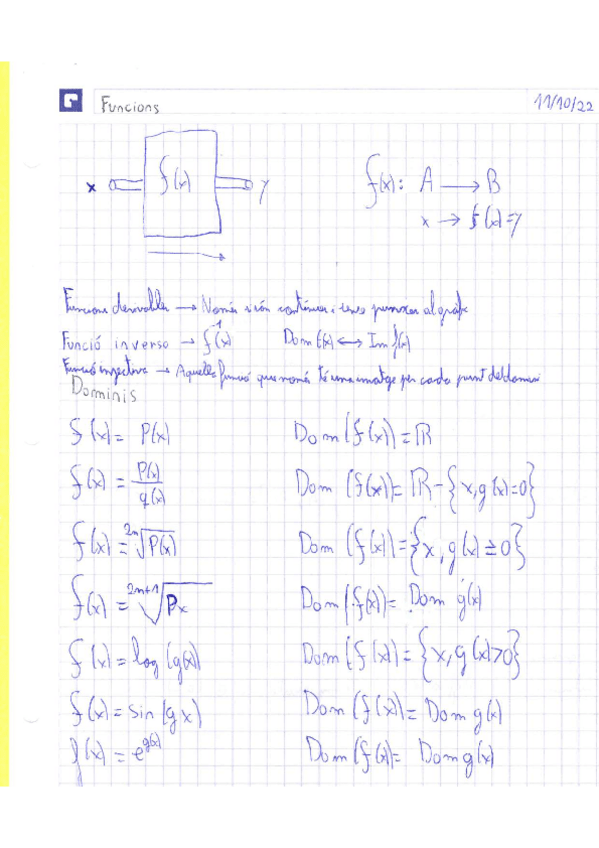 Funcions 11/10/22
x f(x) y
f(x): A → B
x → f(x)=y
Funcions derivables → Només si són contínues i sense punxes al gràfic
Funció inverso → f⁻¹(x) Dom f(x) ↔ Im f(x)
Funció injectiva → Aquella funció que només té una imatge per cada punt del domini
Dominis
f(x) = P(x) Dom (f(x)) = ℝ
f(x) = P(x)/q(x) Dom (f(x)) = ℝ - {x, g(x)=0}
f(x) = ²ⁿ√P(x) Dom (f(x)) = {x, g(x) ≥ 0}
f(x) = ²ⁿ⁺¹√Px Dom (f(x)) = Dom g(x)
f(x) = log (g(x)) Dom (f(x)) = {x, g(x) > 0}
f(x) = sin (g x) Dom (f(x)) = Dom g(x)
f(x) = e^g(x) Dom (f(x) = Dom g(x)